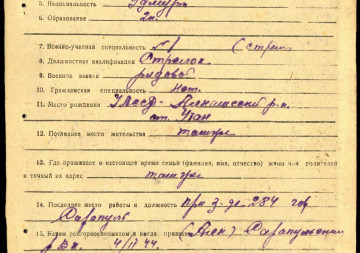 5. Национальность Удмурт
6. Образование 2 кл.
7. Военно-учетная специальность №1 (стрел
8. Должностная квалификация Стрелок
9. Военное звание рядовой
10. Гражданская специальность Нет.
11. Место рождения УАССР
ст.
12. Последнее место жительства
13. Где проживает в настоящее время семья (фамилия, имя, отчество) жены или родителей
и точный их адрес
14. Последнее место работы и должность При з-де 284 гор
Сарапуль
15. Каким райвоенкоматом и когда призван Сарапульский
РВК 4/II 44.